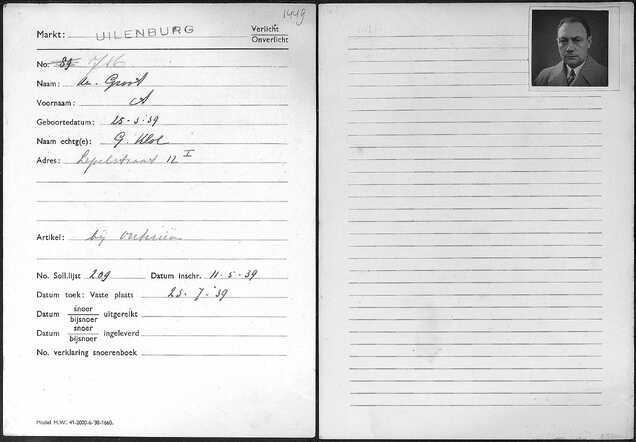 1449
Markt: UILENBURG Verlicht
Onverlicht
No. 85 716
Naam: de Groot
Voornaam: A
Geboortedatum: 25-3-39
Naam echtg(e): G.
Adres: Lepelstraat 12 I
Artikel: bij
No. Soll.lijst 209 Datum inschr. 11-5-39
Datum toek: Vaste plaats 25-7-'39
Datum snoer
bijsnoer uitgereikt
Datum snoer
bijsnoer ingeleverd
No. verklaring snoerenboek
Model M.W. 41-2000-6-'38-1660.